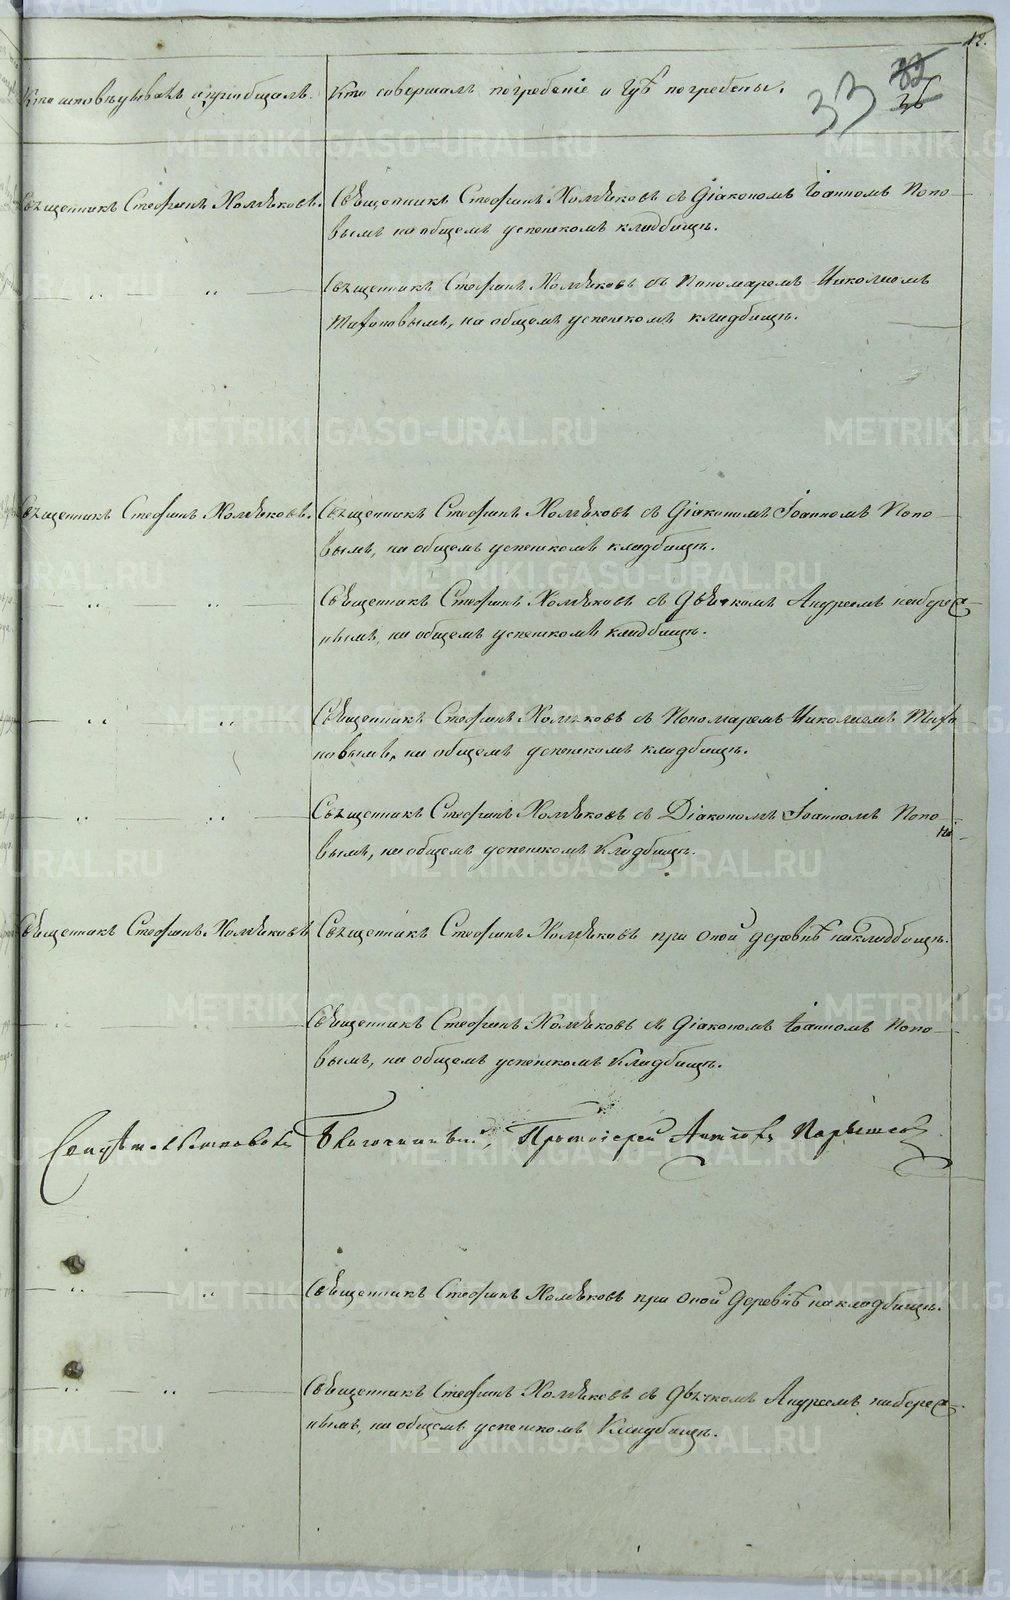 12.
33 32
36
Кто исповѣдывалъ и пріобщалъ. Кто совершалъ погребеніе и гдѣ погребены.
Священникъ Стефанъ Хомяковъ. Священникъ Стефанъ Хомяковъ съ Діакономъ Іоанномъ Попо-
вымъ на общемъ успенскомъ кладбищѣ.
— „ — „ — Священникъ Стефанъ Хомяковъ съ Пономаремъ Николаемъ
на общемъ успенскомъ кладбищѣ.
Священникъ Стефанъ Хомяковъ. Священникъ Стефанъ Хомяковъ съ Діакономъ Іоанномъ Попо-
вымъ, на общемъ успенскомъ кладбищѣ.
— „ „ Священникъ Стефанъ Хомяковъ съ Дьячкомъ Андреемъ набереж-
нымъ, на общемъ успенскомъ кладбищѣ.
— „ — „ — Священникъ Стефанъ Хомяковъ съ Пономаремъ Николаемъ
новымъ, на общемъ успенскомъ кладбищѣ.
— „ — „ — Священникъ Стефанъ Хомяковъ съ Діакономъ Іоанномъ Попо-
вымъ, на общемъ успенскомъ Кладбищѣ.
Священникъ Стефанъ Хомяковъ Священникъ Стефанъ Хомяковъ при оной деревнѣ на кладбищѣ.
— „ — Священникъ Стефанъ Хомяковъ съ Діакономъ Іоанномъ Попо-
вымъ, на общемъ успенскомъ Кладбищѣ.
Свидѣтельствовалъ Благочинный, Протоіерей
— „ — „ — Священникъ Стефанъ Хомяковъ при оной Деревнѣ на кладбищѣ.
— „ — „ — Священникъ Стефанъ Хомяковъ съ дьячкомъ Андреемъ набереж-
нымъ, на общемъ успенскомъ Кладбищѣ.
METRIKI.GASO-URAL.RU